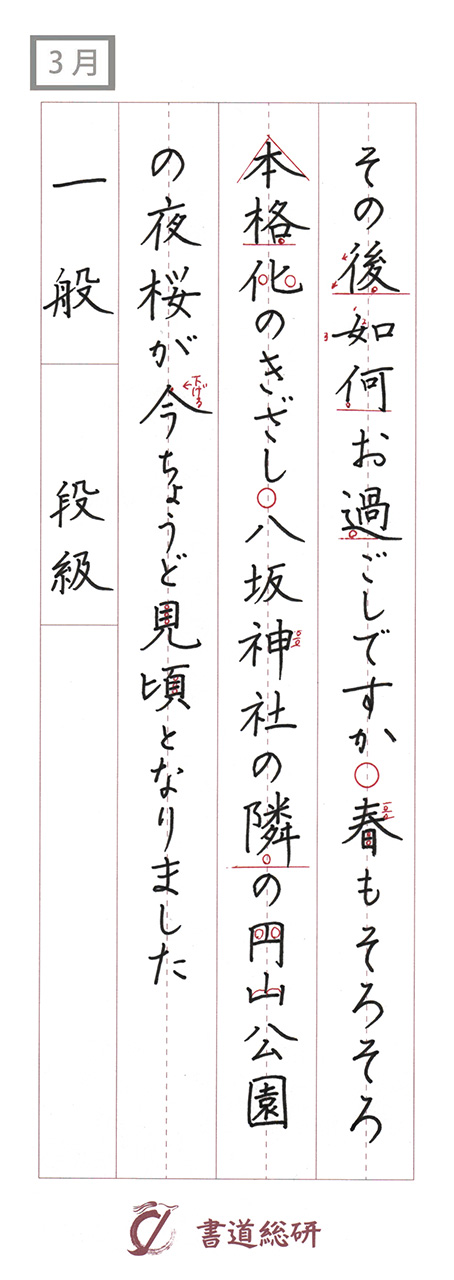 3月
その後如何お過ごしですか春もそろそろ
本格化のきざし八坂神社の隣の円山公園
の夜桜が今ちょうど見頃となりました
下げる
一般
段級
書道総研